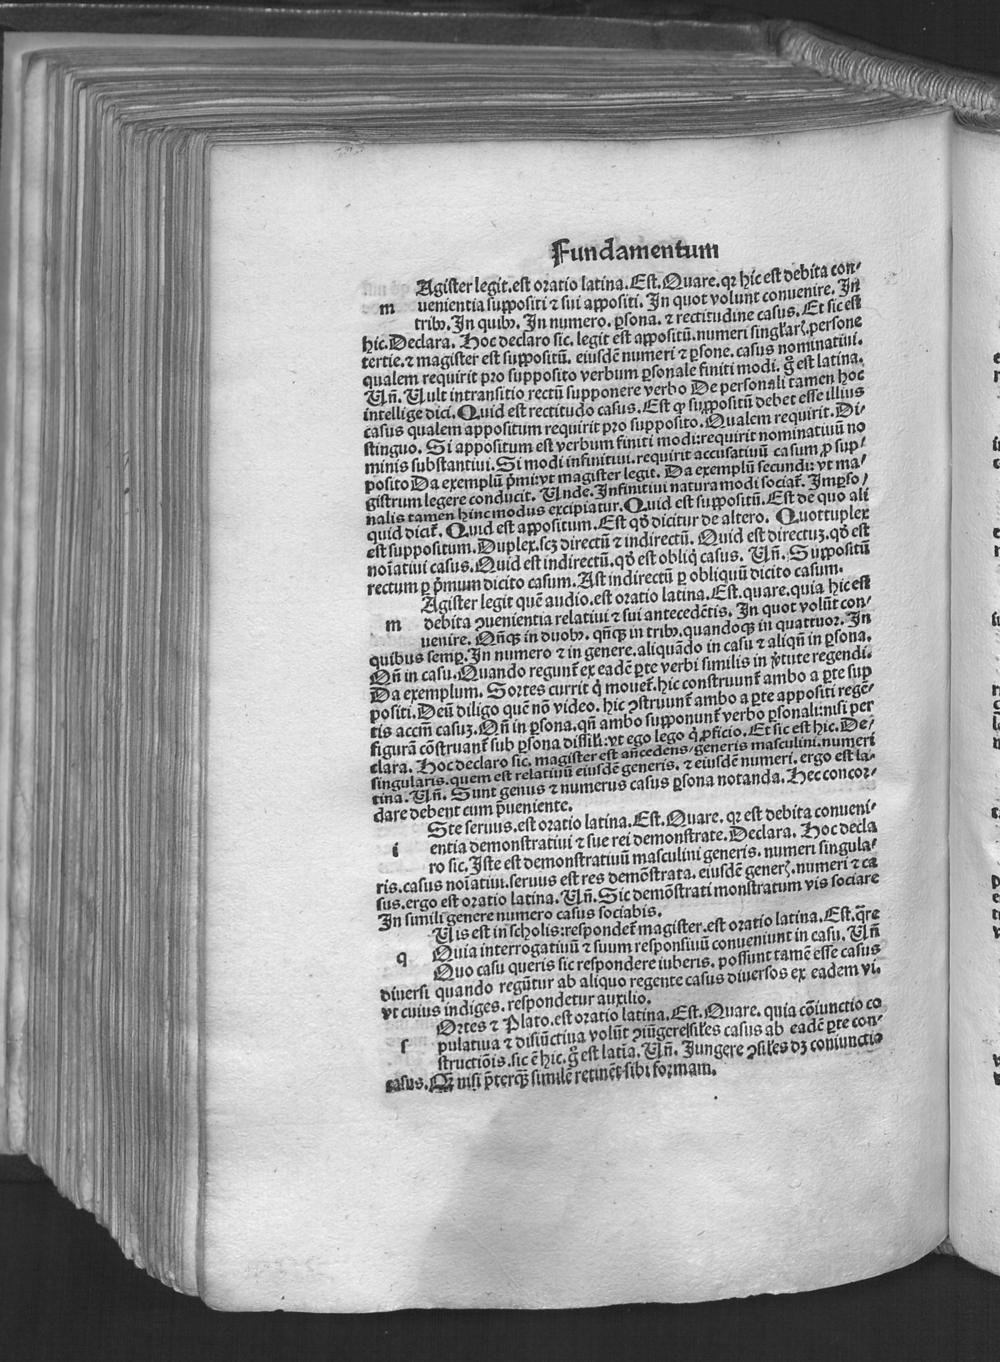 Fundamentum
Agister legit.est oratio latina.Est.Quare.qꝛ hic est debita con⸗
m uenientia suppositi ⁊ sui appositi. In quot volunt conuenire. In
tribꝰ.In quibꝰ. In numero. ꝑsona. ⁊ rectitudine casus. Et sic est
hic.Declara. Hoc declaro sic. legit est appositū.numeri singl'arꝭ.persone
tertie.⁊ magister est suppositū. eiusdē numeri ⁊ ꝑsone. casus nominatiui.
qualem requirit pro supposito verbum ꝑsonale finiti modi. g̊ est latina.
Un̄. Uult intransitio rectū supponere verbo De personali tamen hoc
intellige dici. Quid est rectitudo casus. Est ꝙ suppositū debet esse illius
casus qualem appositum requirit pro supposito. Qualem requirit. Di⸗
stinguo. Si appositum est verbum finiti modi:requirit nominatiuū no
minis substantiui. Si modi infinitiui.requirit accusatiuū casum ꝓ sup⸗
posito Da exemplū p̄mi:vt magister legit. Da exemplū secundi: vt ma⸗
gistrum legere conducit. Unde. Infinitiui natura modi sociat᷑. Imꝑso⸗
nalis tamen hinc modus excipiatur. Quid est suppositū. Est de quo ali
quid dicit᷑. Quid est appositum. Est qd̄ dicitur de altero. Quottuplex
est suppositum. Duplex.scꝫ directū ⁊ indirectū. Quid est directuꝫ. qd̄ est
noīatiui casus. Quid est indirectū. qd̄ est obliqͥ casus. Un̄. Suppositū
rectum ꝑ p̄mum dicito casum. Ast indirectū ꝑ obliquū dicito casum.
Agister legit quē audio.est oratio latina.Est.quare.quia hic est
m debita ꝯuenientia relatiui ⁊ sui antecedētis. In quot volūt con⸗
uenire. Qn̄qꝫ in duobꝰ. qn̄qꝫ in tribꝰ.quandoqꝫ in quattuor. In
quibus semꝑ.In numero ⁊ in genere.aliquādo in casu ⁊ aliqn̄ in ꝑsona.
Qn̄ in casu.Quando regunt᷑ ex eadē ꝑte verbi similis in v̄tute regendi.
Da exemplum. Sortes currit qͥ mouet᷑.hic construunt᷑ ambo a ꝑte sup
positi.Deū diligo quē nō video. hic ꝯstruunt᷑ ambo a ꝑte appositi regē⸗
tis accm̄ casuꝫ. Qn̄ in ꝑsona.qn̄ ambo supponunt᷑ verbo ꝑsonali:nisi per
figurā cōstruant᷑ sub ꝑsona dissili:vt ego lego qͥ ꝓficio. Et sic est hic. De⸗
clara. Hoc declaro sic. magister est an̄cedens generis masculini.numeri
singularis.quem est relatiuū eiusdē generis. ⁊ eiusdē numeri. ergo est la⸗
tina. Un̄. Sunt genus ⁊ numerus casus ꝑsona notanda. Hec concor⸗
dare debent cum p̄ueniente.
Ste seruus.est oratio latina.Est. Quare. qꝛ est debita conueni⸗
i entia demonstratiui ⁊ sue rei demonstrate. Declara. Hoc decla
ro sic. Iste est demonstratiuū masculini generis. numeri singula⸗
ris. casus noīatiui.seruus est res demōstrata. eiusdē generꝭ.numeri ⁊ ca
sus.ergo est oratio latina. Un̄. Sic demōstrati monstratum vis sociare
In simili genere numero casus sociabis.
Uis est in scholis:respondet᷑ magister.est oratio latina. Est.q̄re
q Quia interrogatiuū ⁊ suum responsiuū conueniunt in casu. Un̄
Quo casu queris sic respondere iuberis. possunt tamē esse casus
diuersi quando regūtur ab aliquo regente casus diuersos ex eadem vi.
vt cuius indiges. respondetur auxilio.
Ortes ⁊ Plato.est oratio latina. Est. Quare. quia cōiunctio co
s pulatiua ⁊ disiūctiua volūt ꝯiūgere ꝯsiles casus ab eadē ꝑte con⸗
structiōis. sic ē hic. g̊ est latīa. Un̄. Iungere ꝯsiles dꝫ coniunctio
casus. nisi p̄terqꝫ similē retinēt sibi formam.